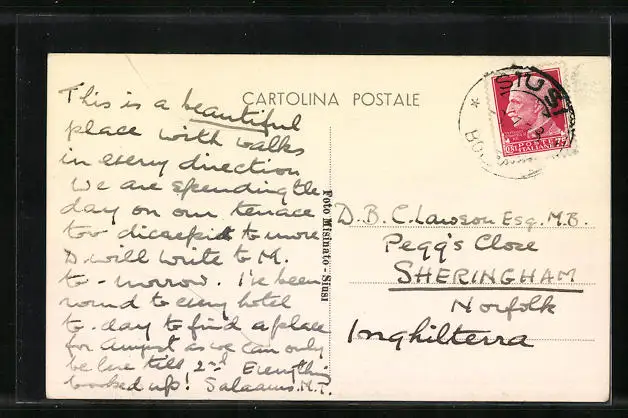 This is a beautiful
place with walks
in every direction
We are spending the
day on our terrace
too to move
D. will write to M.
to-morrow. I've been
round to every hotel
to-day to find a place
for August as we can only
be here till 2nd Everything
booked up! Salaams. M.T.
CARTOLINA POSTALE
Foto Misinato - Siusi
SIUSI
POSTE
ITALIANE
D. B. C. Lawson Esq. M.B.
Pegg's Close
SHERINGHAM
Norfolk
Inghilterra